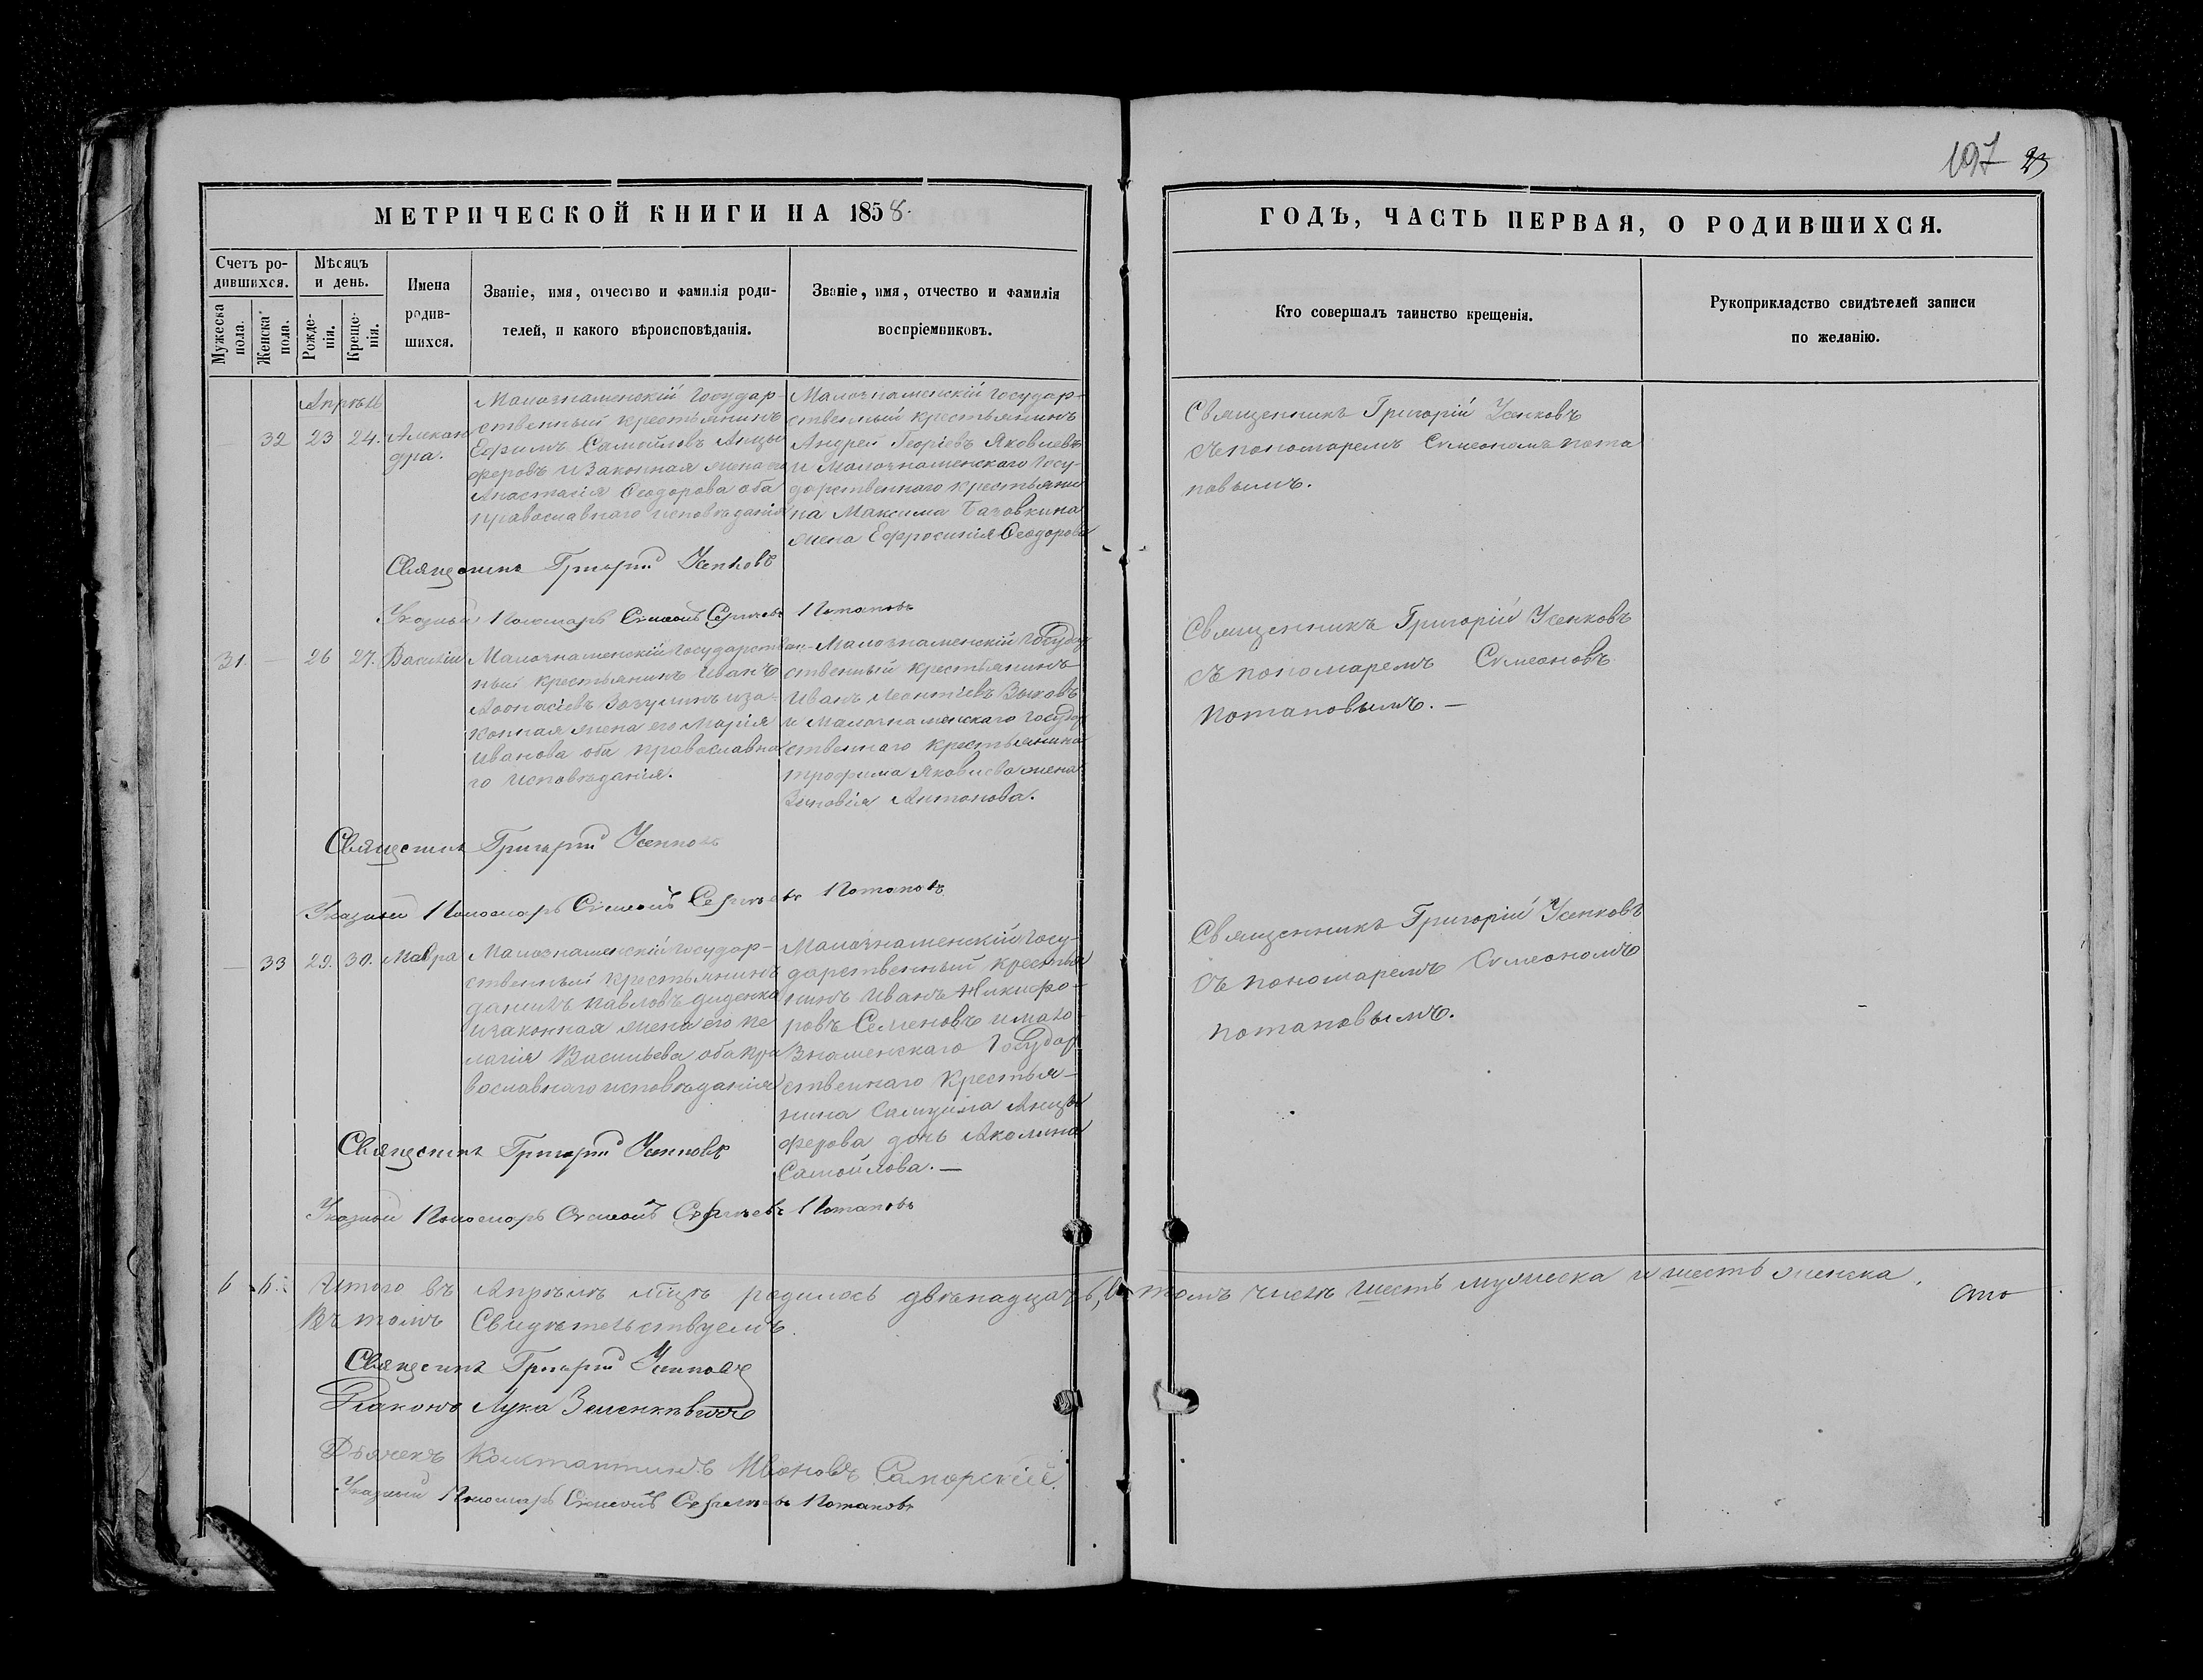 197 23
МЕТРИЧЕСКОЙ КНИГИ НА 1858.
ГОДЪ, ЧАСТЬ ПЕРВАЯ, О РОДИВШИХСЯ.
Счетъ ро-
дившихся.
Мужеска
пола.
Женска
пола.
Мѣсяцъ
и день.
Рожде-
нія.
Креще-
нія.
Имена
родив-
шихся.
Званіе, имя, отчество и фамилія роди-
телей, и какого вѣроисповѣданія.
Званіе, имя, отчество и фамилія
воспріемниковъ.
Кто совершалъ таинство крещенія.
Рукоприкладство свидѣтелей записи
по желанію.
Апрѣль
32 23 24. Алексан
дра.
Малознаменскій Государ-
ственный крестьянинъ
Ефимъ Самойловъ Анцы
феровъ и законная жена его
Анастасія Ѳеодорова оба
православнаго исповѣданія
Малознаменскій государ-
ственный крестьянинъ
Андрей Георгіевъ Яковлевъ
и Малознаменскаго Госу-
дарственнаго крестьяни
на Максима Базовкина
жена Ефросинія Ѳеодорова
Священникъ Григорій Усенковъ
съ пономаремъ Симеономъ Пота
повымъ.
Священникъ Григорій Усенковъ
Указный Пономарь Симеонъ Сергѣевъ Потаповъ
31. 26 27. Василій
Малознаменскій государствен-
ный крестьянинъ Иванъ
Аѳонасіевъ Зозулинъ и за-
конная жена его Марія
Иванова оба православна
го исповѣданія.
Малознаменскій Государ
ственный крестьянинъ
Иванъ Леонтіевъ Зыковъ
и Малознаменскаго государ
ственнаго крестьянина
Трофима Яковлева жена
Зиновія Антонова.
Священникъ Григорій Усенковъ
съ пономаремъ Симеоновъ
Потаповымъ. —
Священникъ Григорій Усенковъ
Указный Пономарь Симеонъ Сергѣевъ Потаповъ
33 29. 30. Мавра
Малознаменскій государ-
ственный крестьянинъ
Данилъ Павловъ Диденко
и законная жена его Пе
лагія Васильева оба пра
вославнаго исповѣданія
Малознаменскій Госу-
дарственный крестья
нинъ Иванъ Никифо-
ровъ Семеновъ и Мало
Знаменскаго Государ
ственнаго Крестья-
нина Самуила Анцы
ферова дочь Аколина
Самойлова. —
Священникъ Григорій Усенковъ
Съ пономаремъ Симеономъ
Потаповымъ.
Священникъ Григорій Усенковъ
Указный Пономарь Симеонъ Сергѣевъ Потаповъ
6 6. Итого въ Апрѣлѣ мцѣ родилось двѣнадцать, въ томъ числѣ шесть мужеска и шесть женска.
Въ томъ Свидѣтельствуемъ.
Священникъ Григорій Усенковъ
Діаконъ Лука
Дьячекъ Константинъ Ивановъ Саморскій.
Указный Пономарь Симеонъ Сергѣевъ Потаповъ